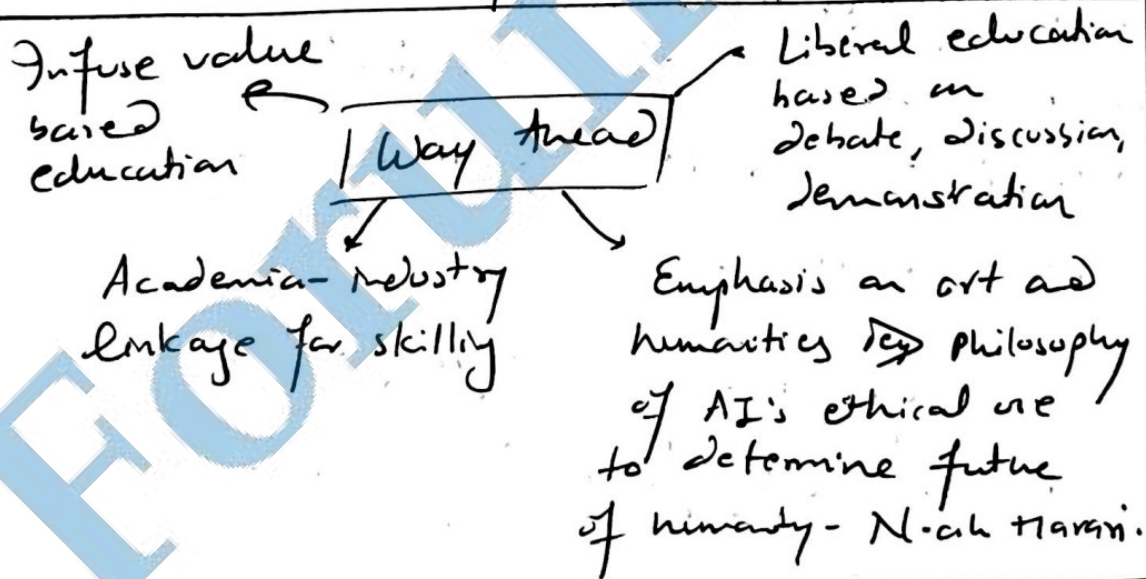 Infuse value
based
education
Way Ahead
Liberal education
based on
debate, discussion,
demonstration
Academia-industry
linkage for skilling
Emphasis on art and
humanities philosophy
of AI's ethical use
to determine future
of humanity - Noah Harari.
Forum